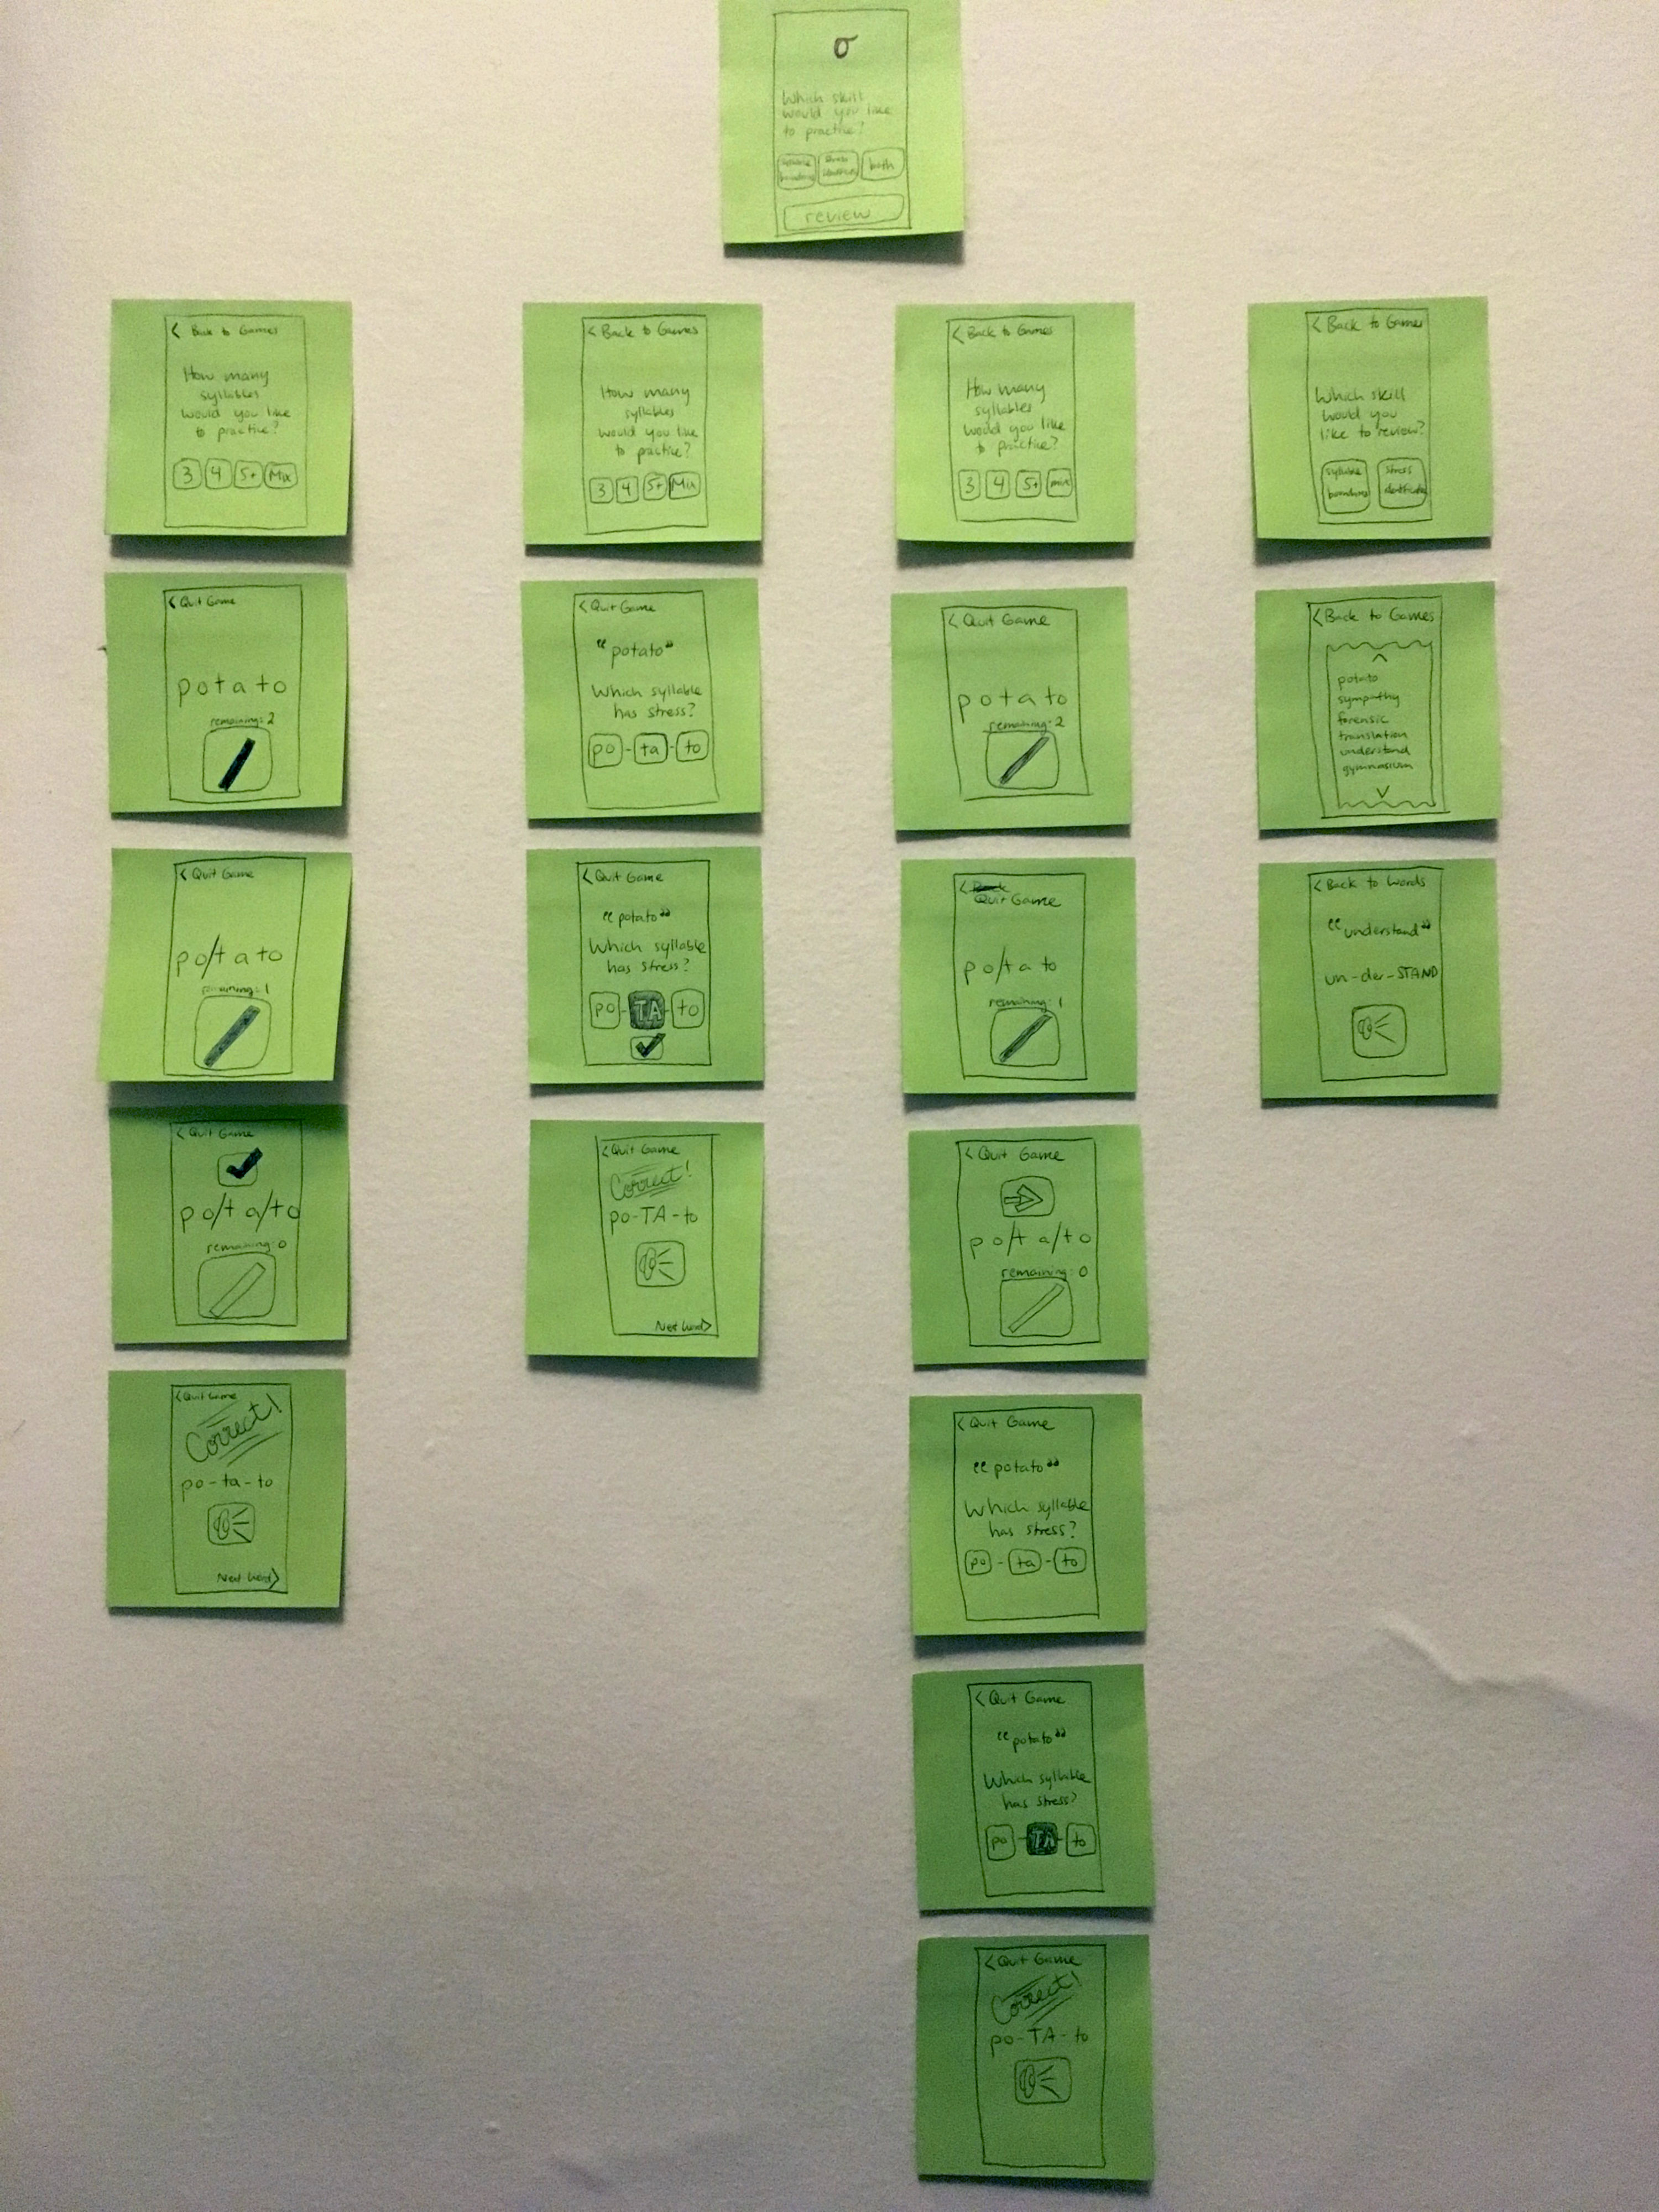 σ
Which skill
would you like
to practice?
syllable
boundaries
stress
both
review
< Back to Games
How many
syllables
would you like
to practice?
3 4 5+ Mix
< Quit Game
potato
remaining: 2
< Quit Game
po/tato
remaining: 1
< Quit Game
po/ta/to
remaining: 0
< Quit Game
Correct!
po-ta-to
Next Word >
< Back to Games
How many
syllables
would you like
to practice?
3 4 5+ Mix
< Quit Game
"potato"
Which syllable
has stress?
po - ta - to
< Quit Game
"potato"
Which syllable
has stress?
po - TA - to
< Quit Game
Correct!
po-TA-to
Next Word >
< Back to Games
How many
syllables
would you like
to practice?
3 4 5+ mix
< Quit Game
potato
remaining: 2
< Quit Game
po/tato
remaining: 1
< Quit Game
po/ta/to
remaining: 0
< Quit Game
"potato"
Which syllable
has stress?
po - ta - to
< Quit Game
"potato"
Which syllable
has stress?
po - TA - to
< Quit Game
Correct!
po-TA-to
< Back to Games
Which skill
would you
like to review?
syllable
boundaries
stress
< Back to Games
potato
sympathy
forensic
translation
understand
gymnasium
< Back to Words
"understand"
un-der-STAND